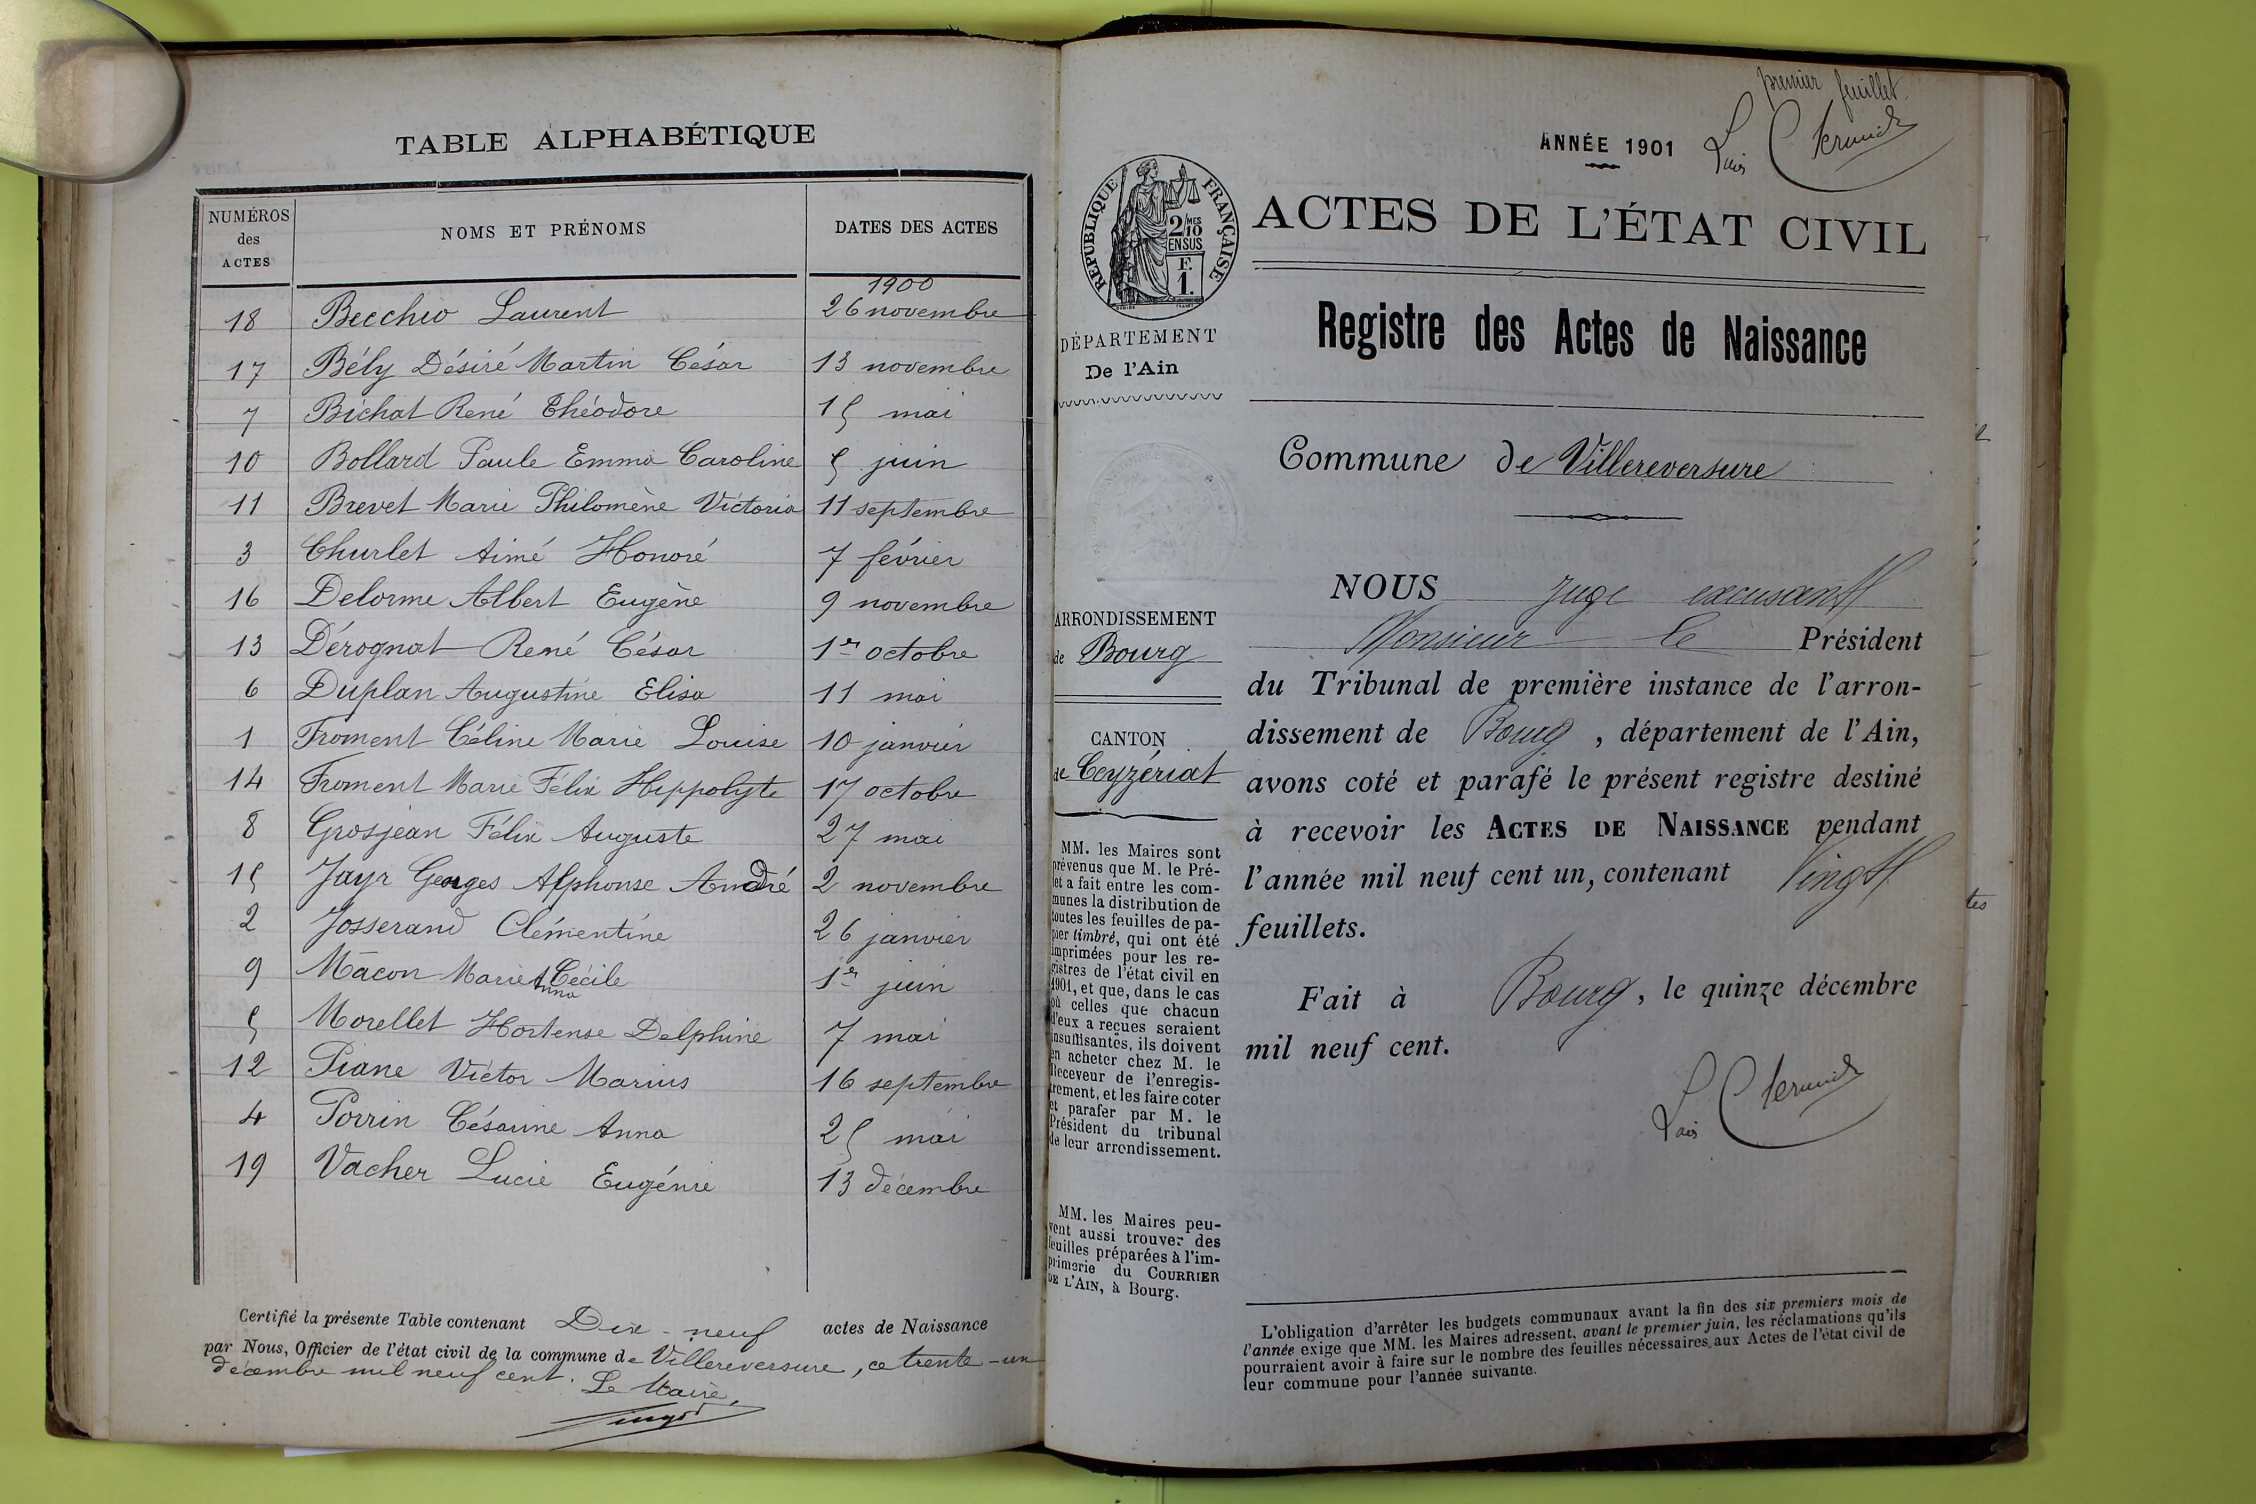 TABLE ALPHABÉTIQUE
NUMÉROS des ACTES NOMS ET PRÉNOMS DATES DES ACTES
1900
18 Becchio Laurent 26 novembre
17 Bély Désiré Martin César 13 novembre
7 Bichat René Théodore 15 mai
10 Bollard Paule Emma Caroline 5 juin
11 Brevet Marie Philomène Victoria 11 septembre
3 Churlet Aimé Honoré 7 février
16 Delorme Albert Eugène 9 novembre
13 Dérognat René César 1er octobre
6 Duplan Augustine Elisa 11 mai
1 Froment Céline Marie Louise 10 janvier
14 Froment Marie Félix Hippolyte 17 octobre
8 Grosjean Félix Auguste 27 mai
15 Jayr Georges Alphonse André 2 novembre
2 Josserand Clémentine 26 janvier
9 Mâcon Marie Anna Cécile 1er juin
5 Morellet Hortense Delphine 7 mai
12 Piane Victor Marius 16 septembre
4 Porrin Césarine Anna 25 mai
19 Vacher Lucie Eugénie 13 décembre
Certifié la présente Table contenant Dix-neuf actes de Naissance
par Nous, Officier de l'état civil de la commune de Villereversure, ce trente-un
décembre mil neuf cent. Le Maire,
premier feuillet.
ANNÉE 1901
RÉPUBLIQUE FRANÇAISE
2/MES
10
EN SUS
F.
1.
ACTES DE L'ÉTAT CIVIL
DÉPARTEMENT
De l'Ain
Registre des Actes de Naissance
Commune de Villereversure
ARRONDISSEMENT
de Bourg
CANTON
de Ceyzériat
MM. les Maires sont
prévenus que M. le Pré-
fet a fait entre les com-
munes la distribution de
toutes les feuilles de pa-
pier timbré, qui ont été
imprimées pour les re-
gistres de l'état civil en
1901, et que, dans le cas
où celles que chacun
d'eux a reçues seraient
insuffisantes, ils doivent
en acheter chez M. le
Receveur de l'enregis-
trement, et les faire coter
et parafer par M. le
Président du tribunal
de leur arrondissement.
MM. les Maires peu-
vent aussi trouver des
feuilles préparées à l'im-
primerie du COURRIER
DE L'AIN, à Bourg.
NOUS Juge excusant
Monsieur le Président
du Tribunal de première instance de l'arron-
dissement de Bourg, département de l'Ain,
avons coté et parafé le présent registre destiné
à recevoir les ACTES DE NAISSANCE pendant
l'année mil neuf cent un, contenant Vingt
feuillets.
Fait à Bourg, le quinze décembre
mil neuf cent.
L'obligation d'arrêter les budgets communaux avant la fin des six premiers mois de
l'année exige que MM. les Maires adressent, avant le premier juin, les réclamations qu'ils
pourraient avoir à faire sur le nombre des feuilles nécessaires aux Actes de l'état civil de
leur commune pour l'année suivante.